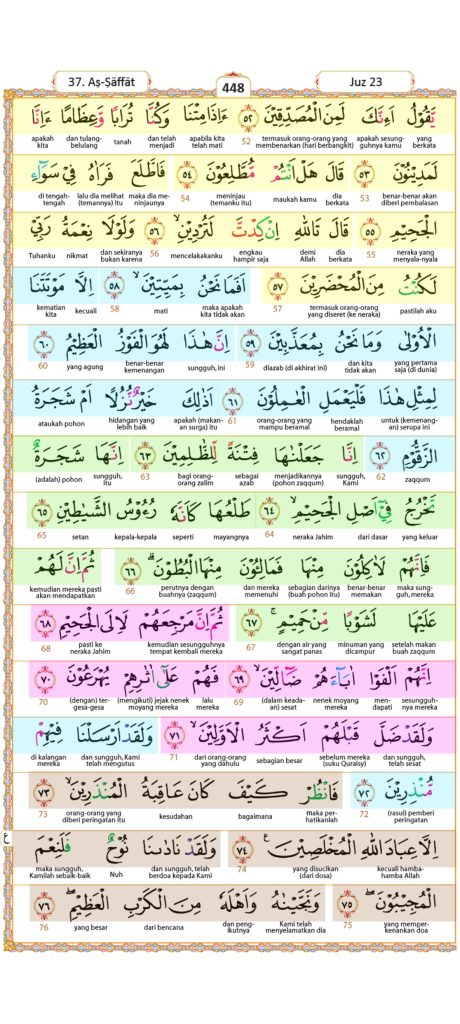 37. Aṣ-Ṣāffāt 448 Juz 23
يَّقُوْلُ اَىِٕنَّكَ لَمِنَ الْمُصَدِّقِيْنَ ٥٢ ءَاِذَا مِتْنَا وَكُنَّا تُرَابًا وَّعِظَامًا ءَاِنَّا
yang berkata apakah sesungguhnya kamu termasuk orang-orang yang membenarkan (hari berbangkit) 52 apabila kita telah mati dan telah menjadi tanah dan tulang-belulang apakah kita
لَمَدِيْنُوْنَ ٥٣ قَالَ هَلْ اَنْتُمْ مُّطَّلِعُوْنَ ٥٤ فَاطَّلَعَ فَرَاٰهُ فِيْ سَوَاۤءِ
benar-benar akan diberi pembalasan 53 dia berkata maukah kamu meninjau (temanku itu) 54 maka dia meninjaunya lalu dia melihat (temannya) itu di tengah-tengah
الْجَحِيْمِ ٥٥ قَالَ تَاللّٰهِ اِنْ كِدْتَّ لَتُرْدِيْنِ ۙ ٥٦ وَلَوْلَا نِعْمَةُ رَبِّيْ
neraka yang menyala-nyala 55 dia berkata demi Allah engkau hampir saja mencelakakanku 56 dan sekiranya bukan karena nikmat Tuhanku
لَكُنْتُ مِنَ الْمُحْضَرِيْنَ ٥٧ اَفَمَا نَحْنُ بِمَيِّتِيْنَ ۙ ٥٨ اِلَّا مَوْتَتَنَا
pastilah aku termasuk orang-orang yang diseret (ke neraka) 57 maka apakah kita tidak akan mati 58 kecuali kematian kita
الْاُوْلٰى وَمَا نَحْنُ بِمُعَذَّبِيْنَ ٥٩ اِنَّ هٰذَا لَهُوَ الْفَوْزُ الْعَظِيْمُ ٦٠
yang pertama saja (di dunia) dan kita tidak akan diazab (di akhirat ini) 59 sungguh, ini benar-benar kemenangan yang agung 60
لِمِثْلِ هٰذَا فَلْيَعْمَلِ الْعٰمِلُوْنَ ٦١ اَذٰلِكَ خَيْرٌ نُّزُلًا اَمْ شَجَرَةُ
untuk (kemenangan) serupa ini hendaklah beramal orang-orang yang mampu beramal 61 apakah (makanan surga) itu hidangan yang lebih baik ataukah pohon
الزَّقُّوْمِ ٦٢ اِنَّا جَعَلْنٰهَا فِتْنَةً لِّلظّٰلِمِيْنَ ٦٣ اِنَّهَا شَجَرَةٌ
zaqqum 62 sungguh, Kami menjadikannya (pohon zaqqum) sebagai azab bagi orang-orang zalim 63 sungguh, itu (adalah) pohon
تَخْرُجُ فِيْٓ اَصْلِ الْجَحِيْمِ ۙ ٦٤ طَلْعُهَا كَاَنَّهٗ رُءُوْسُ الشَّيٰطِيْنِ ٦٥
yang keluar dari dasar neraka Jahim 64 mayangnya seperti kepala-kepala setan 65
فَاِنَّهُمْ لَاٰكِلُوْنَ مِنْهَا فَمَالِـُٔوْنَ مِنْهَا الْبُطُوْنَ ۗ ٦٦ ثُمَّ اِنَّ لَهُمْ
maka sungguh, mereka benar-benar memakan sebagian darinya (buah pohon itu) dan mereka memenuhi perutnya dengan buahnya (zaqqum) 66 kemudian mereka pasti akan mendapatkan
عَلَيْهَا لَشَوْبًا مِّنْ حَمِيْمٍ ۚ ٦٧ ثُمَّ اِنَّ مَرْجِعَهُمْ لَاِلَى الْجَحِيْمِ ٦٨
setelah makan buah zaqqum minuman yang dicampur dengan air yang sangat panas 67 kemudian sesungguhnya tempat kembali mereka pasti ke neraka Jahim 68
اِنَّهُمْ اَلْفَوْا اٰبَاۤءَهُمْ ضَاۤلِّيْنَ ۙ ٦٩ فَهُمْ عَلٰٓى اٰثٰرِهِمْ يُهْرَعُوْنَ ٧٠
sesungguhnya mereka mendapati nenek moyang mereka (dalam keadaan) sesat 69 lalu mereka (mengikuti) jejak nenek moyang mereka (dengan) tergesa-gesa 70
وَلَقَدْ ضَلَّ قَبْلَهُمْ اَكْثَرُ الْاَوَّلِيْنَ ۙ ٧١ وَلَقَدْ اَرْسَلْنَا فِيْهِمْ
dan sungguh, telah sesat sebelum mereka (suku Quraisy) sebagian besar dari orang-orang yang dahulu 71 dan sungguh, Kami telah mengutus di kalangan mereka
مُّنْذِرِيْنَ ٧٢ فَانْظُرْ كَيْفَ كَانَ عَاقِبَةُ الْمُنْذَرِيْنَ ۙ ٧٣
(rasul) pemberi peringatan 72 maka perhatikanlah bagaimana kesudahan orang-orang yang diberi peringatan itu 73
اِلَّا عِبَادَ اللّٰهِ الْمُخْلَصِيْنَ ࣖ ٧٤ وَلَقَدْ نَادٰىنَا نُوْحٌ فَلَنِعْمَ
ع
kecuali hamba-hamba Allah yang disucikan (dari dosa) 74 dan sungguh, telah berdoa kepada Kami Nuh maka sungguh, Kamilah sebaik-baik
الْمُجِيْبُوْنَ ۖ ٧٥ وَنَجَّيْنٰهُ وَاَهْلَهٗ مِنَ الْكَرْبِ الْعَظِيْمِ ۖ ٧٦
yang memperkenankan doa 75 Kami telah menyelamatkan dia dan pengikutnya dari bencana yang besar 76